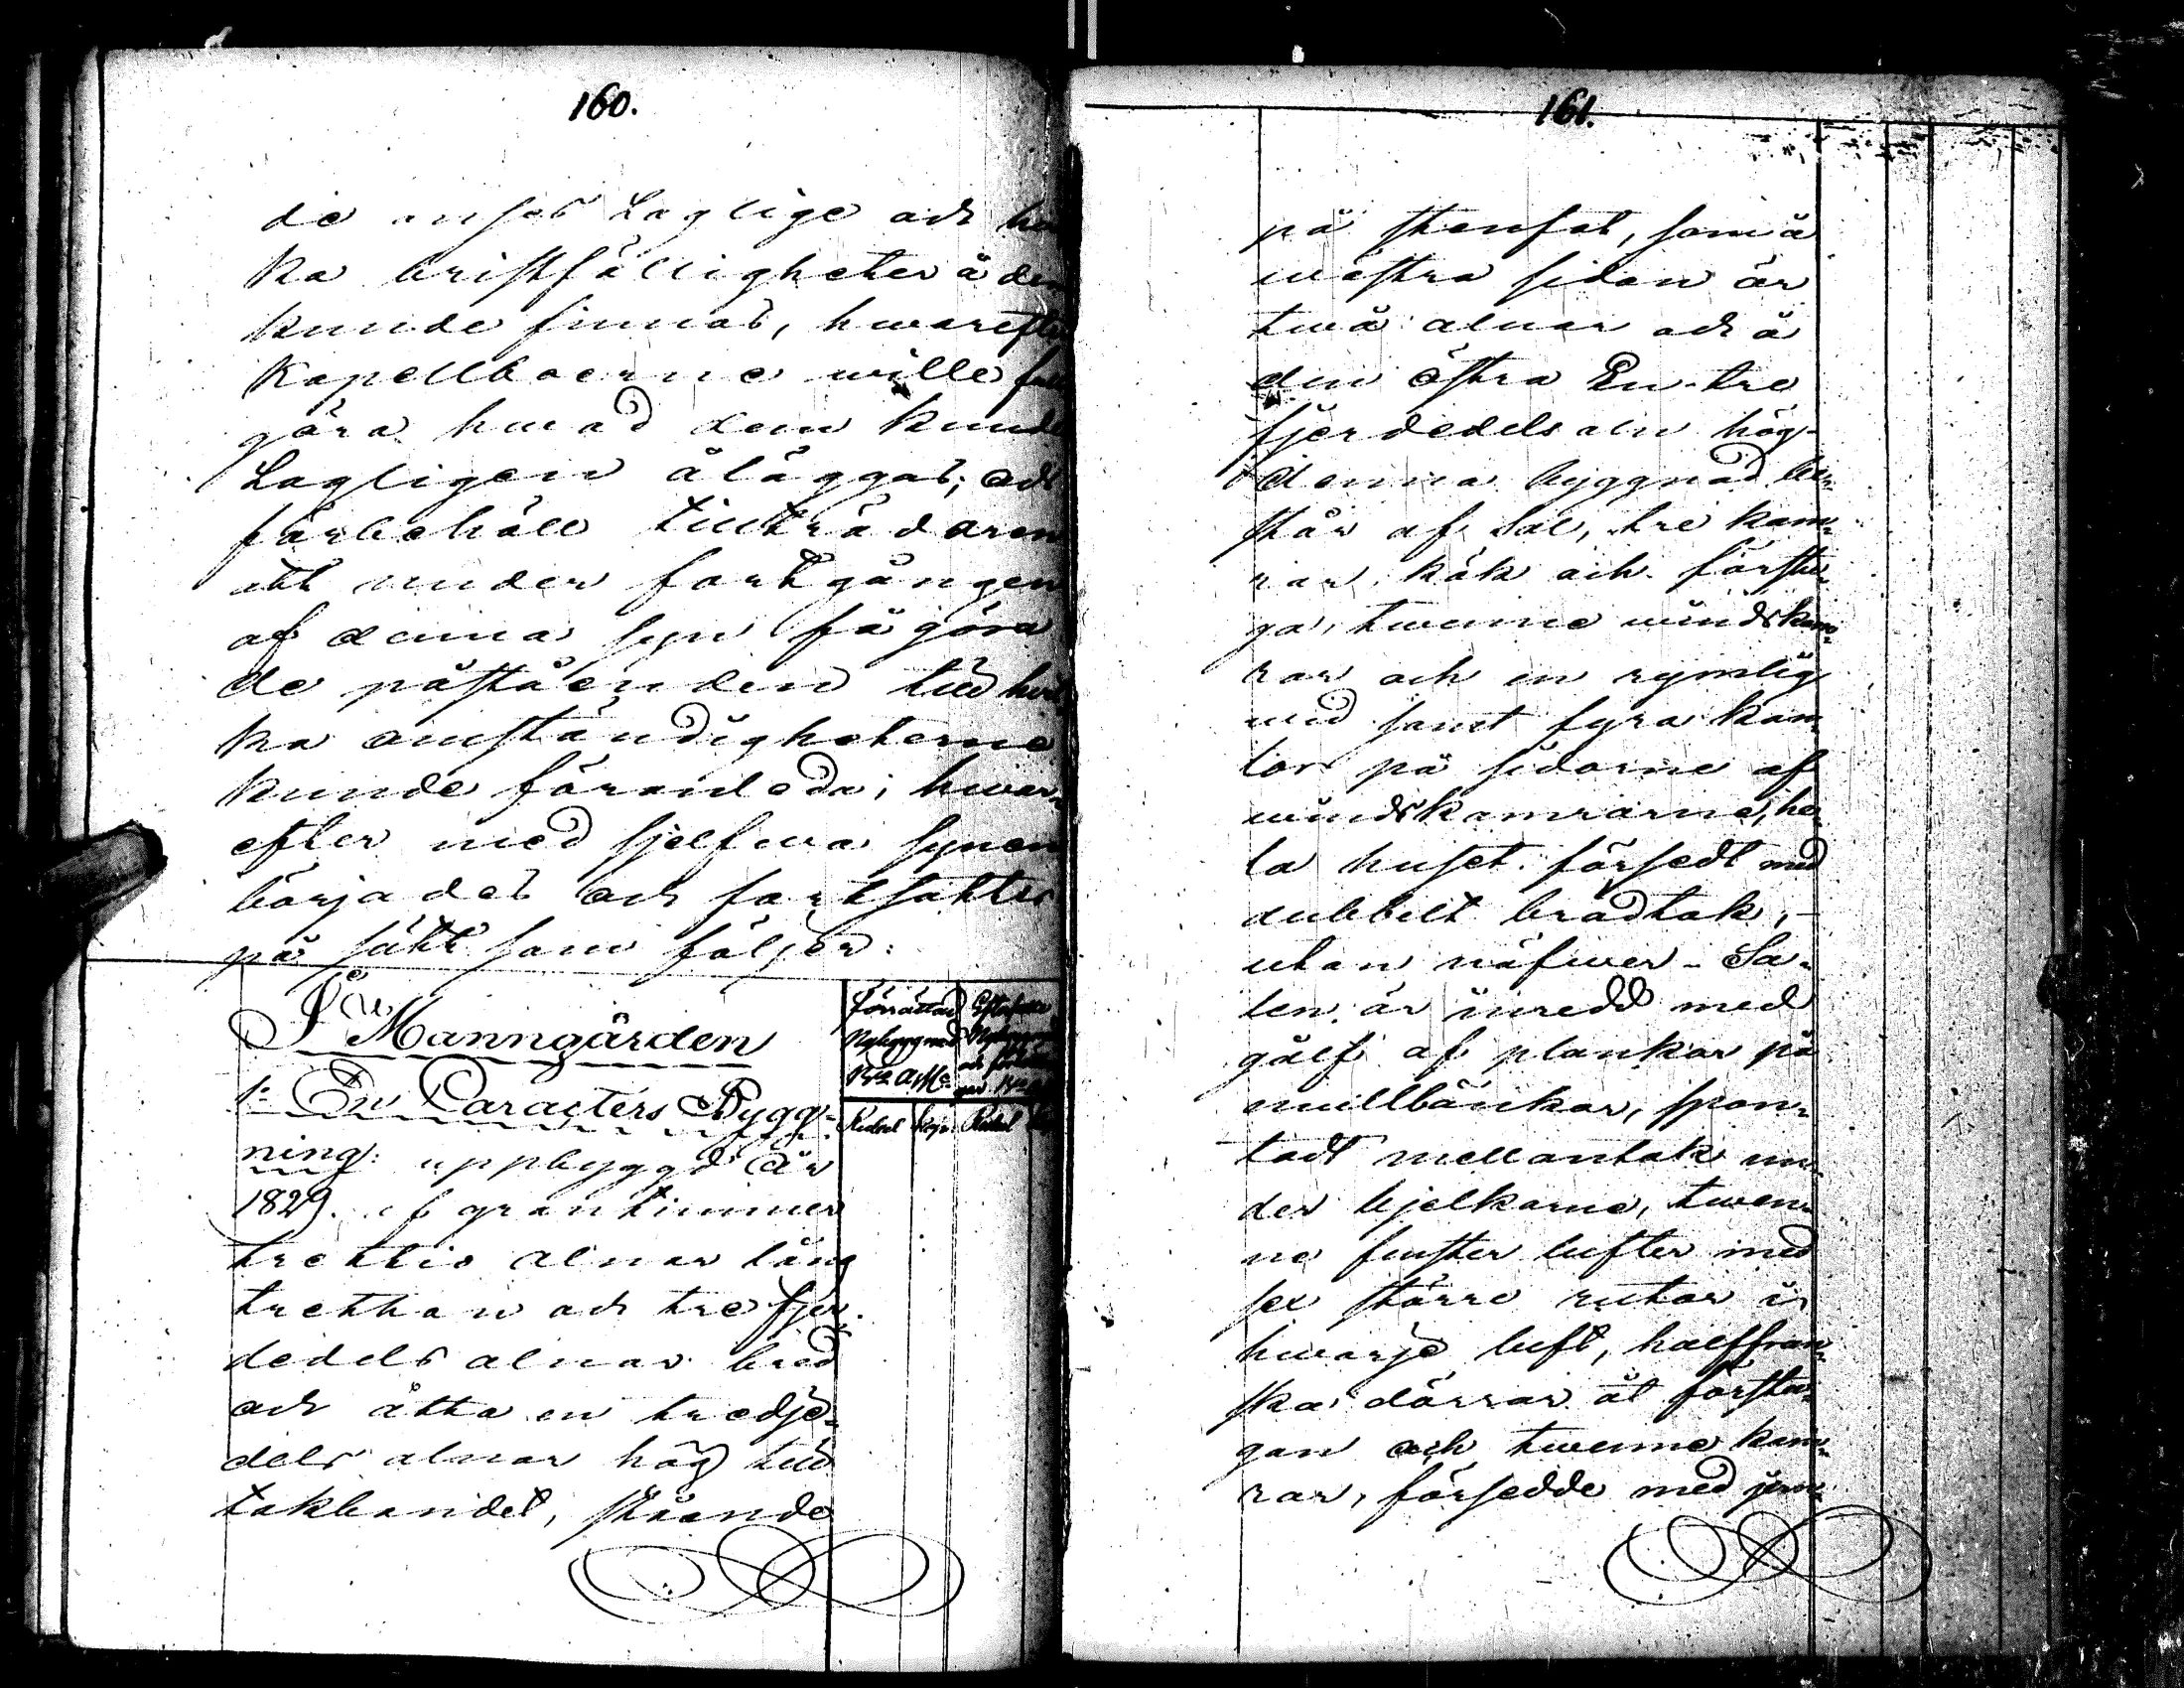 160.
de anses Laglige och
ka bristfälligheter å
kunde finnas, hwarefter
Kapellboerne wille
göra hwad dem kunde
Lagligen åläggas; och
förbehåll tillträdaren
att under fortgången
af denna syn få göra
de påståenden till
ka omständigheterne
kunde föranleda; hwar-
efter med sjelfwa synen
börjades och fortsattes
på sätt som följer:
Manngården
1: En Caracters Bygg-
ning: uppbyggd år
1829. af grantimmer
trettio alnar lång
tretton och tre fjer-
dedels alnar bred
och åtta en tredje-
dels alnar hög till
takbandet, stående
Förrättad
Nybyggnad
Rubel Kop: Rubel
161.
på stenfot, som å
westra sidan är
twå alnar och å
den östra En-tre
fjerdedels aln hög-
denna byggnad be-
står af Sal, tre kam-
rar, kök och förstu-
ga, twenne windskam-
rar och en rymlig
wid samt fyra kon-
tor på sidorne af
windskamrarne, he-
la huset försedt med
dubbelt brädtak,-
utan näfwer - Sa-
len är inredd med
gålf af plankor på
mullbänkar, spon-
tadt mellantak un-
der bjelkarne, twen-
ne fenster lufter med
sex större rutor i
hwarje luft, halffran-
ska dörrar åt förstu-
gan och twenne kam-
rar, försedde med jern-